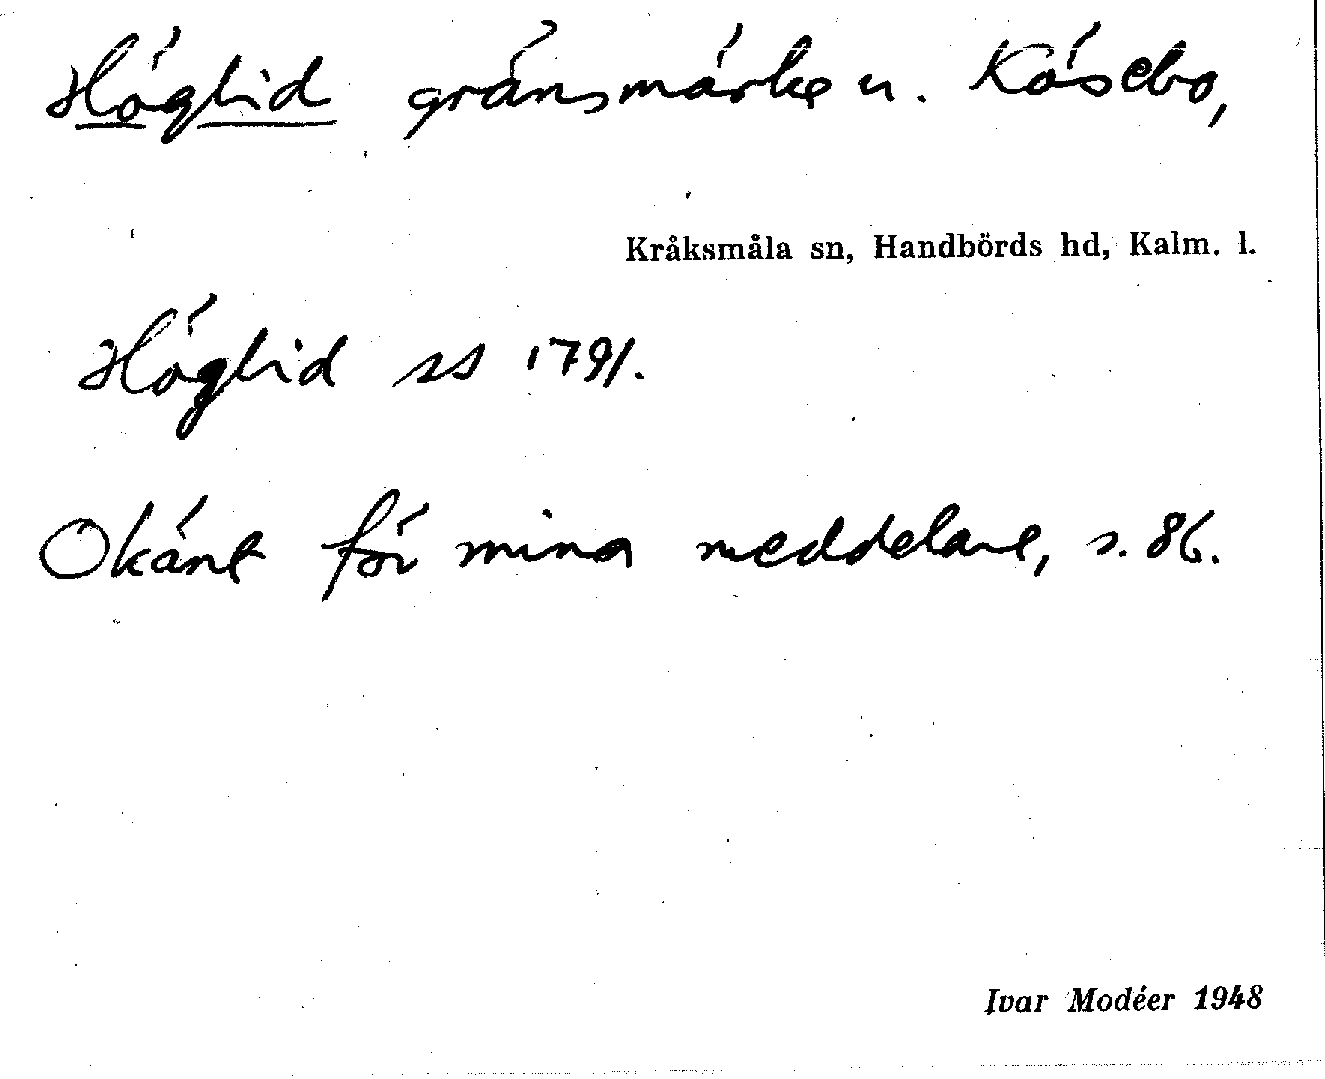 Höglid gränsmärke u. Kåsebo,
Kråksmåla sn, Handbörds hd, Kalm. l.
Höglid ss 1791.
Okänt för mina meddelare, s. 86.
Ivar Modéer 1948